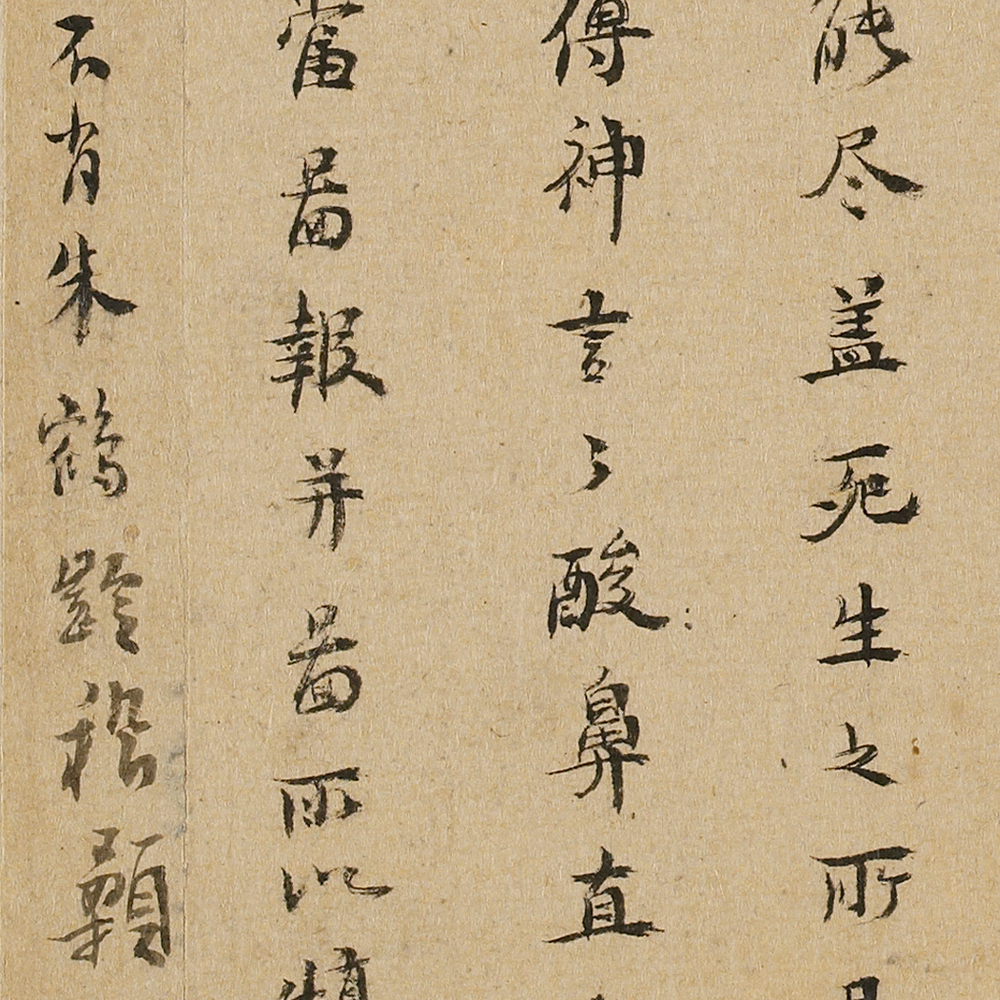 能尽盖死生之所
傳神言〻酸鼻直
當啚報并啚所以
不肖朱鶴齡稽顙